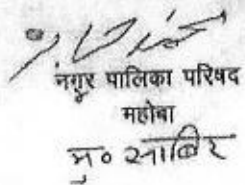 नगर पालिका परिषद
महोबा
मु० साबिर